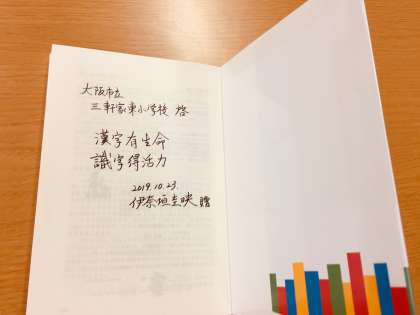 大阪市立
三軒家東小学校 啓
漢字有生命
識字得活力
2019.10.23.
伊奈垣圭映 贈